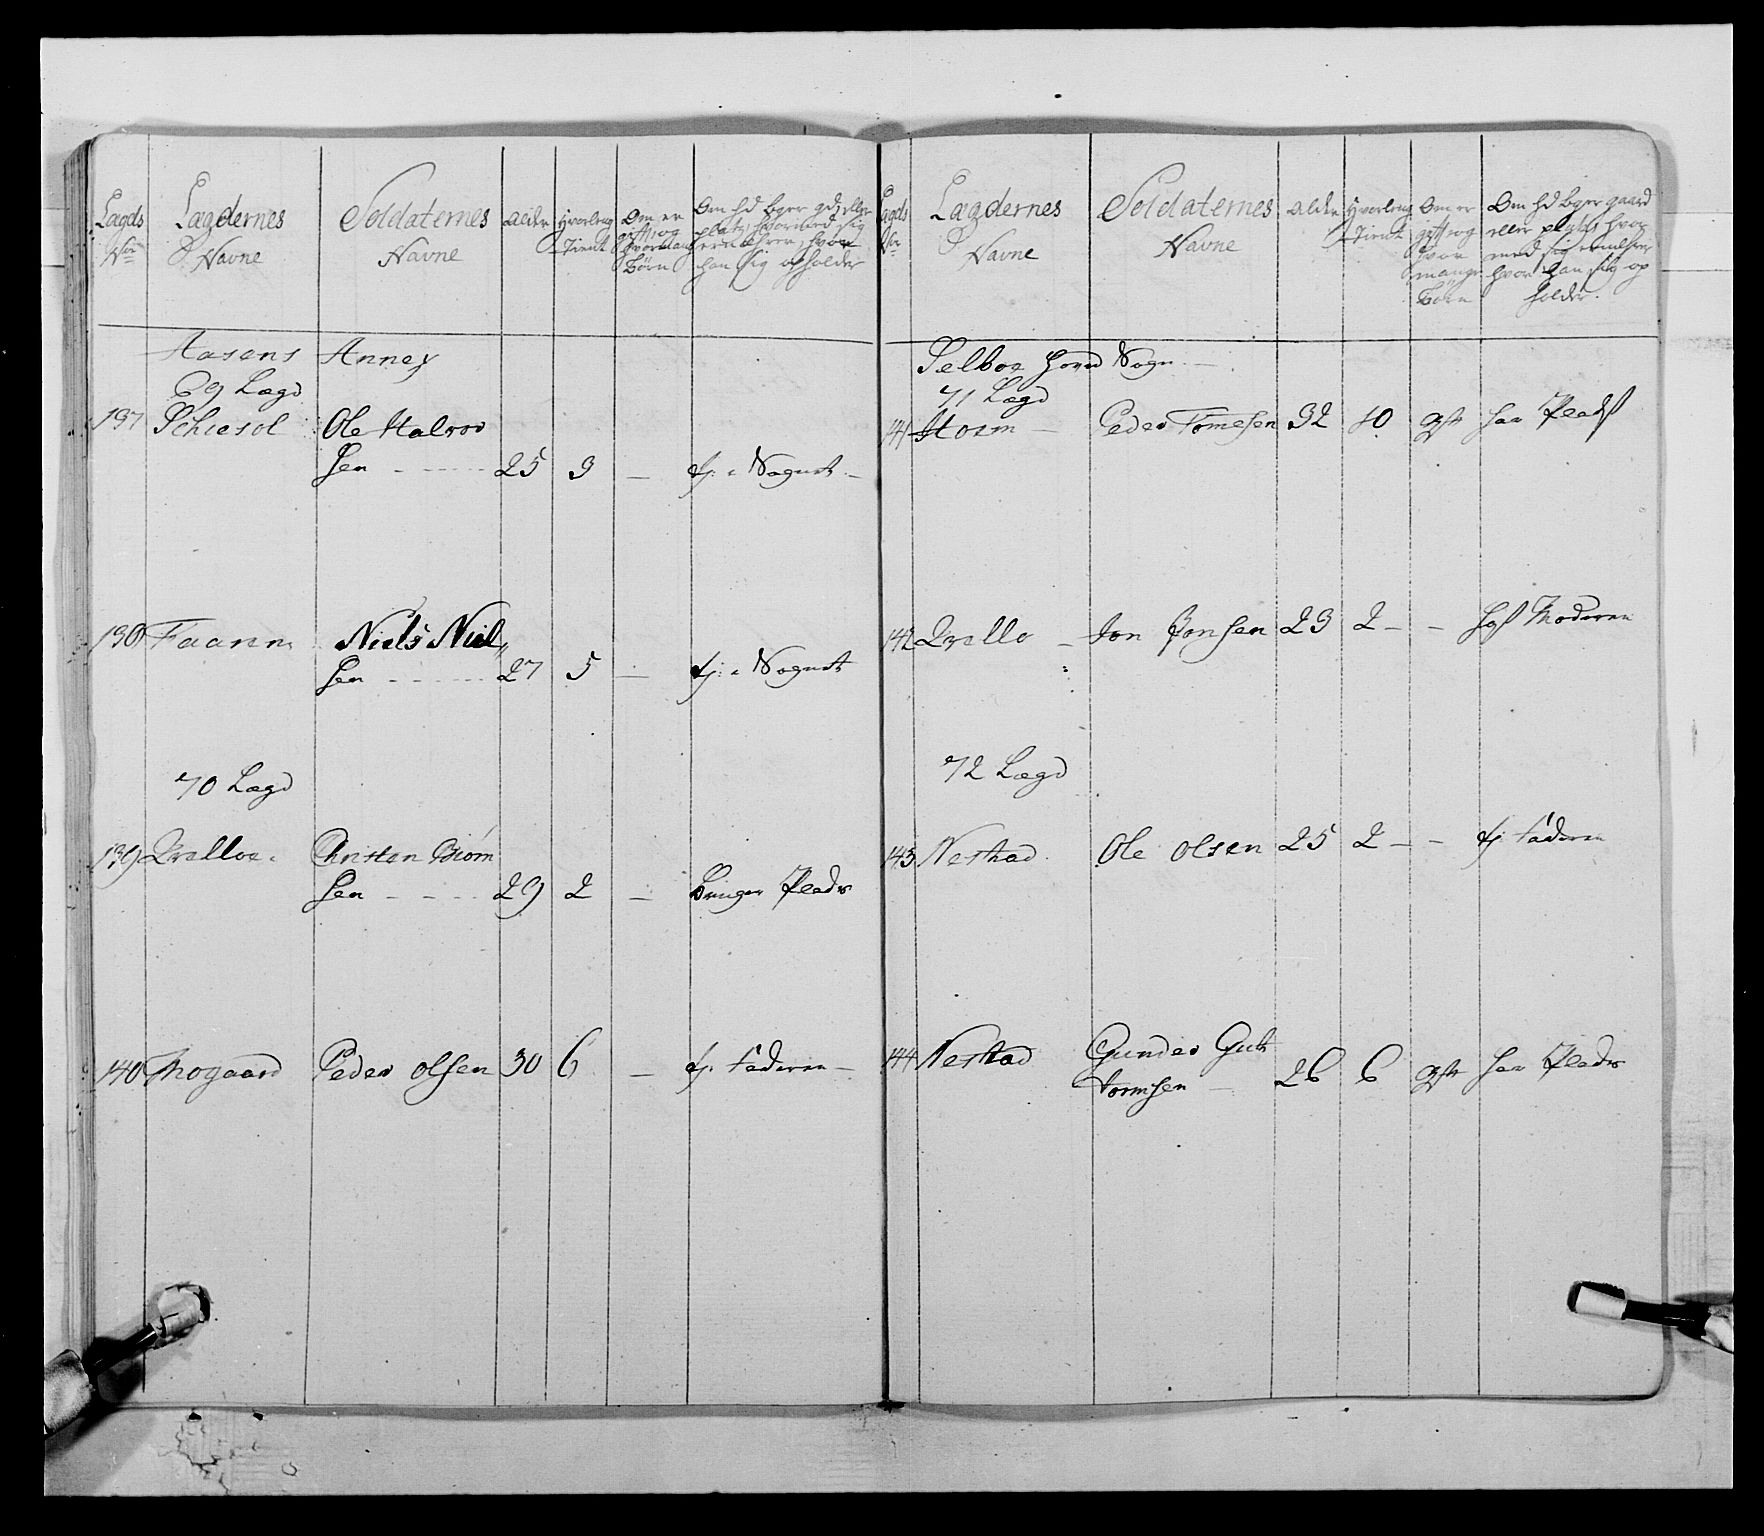 Lægds Nr
Lægdernes Navne
Soldaternes Navne
Alder
Hvorleng Tient
Om er gift, og hvormang Børn
Om hd boger gd eller plads, hvormed sig ernehrer, hvor han sig opholder
Aasens Annex
69 Lægd
137 Schiesol Ole Halvor
sen 25 3 — tj: i Sognet —
138 Faaren Niels Niel„
sen 27 5 — tj: i Sognet
70 Lægd
139 Qvelloe Christen Biørn
sen 29 2 — Bruger Plads
140 Mogaard Peder Olsen 30 6 — tj. faderen —
Lægds Nr
Lægdernes Navne
Soldaternes Navne
Alder
Hvorleng Tient
Om er gift, og hvor mange Børn
Om hd boger gaard eller plads hvor med sig ernehrer hvor han sig op holder.
Selboe Hoved Sogn —
71 Lægd
141 Stoem — Peder Tomesen 32 10 gift har Plads
142 Qvello — Jon Jonsen 23 2 — — hos Moderen
72 Lægd
143 Nestad Ole Olsen 25 2 — — tj. faderen
144 Nestad Gunder Gut
tormsen — 26 6 gift har Plads